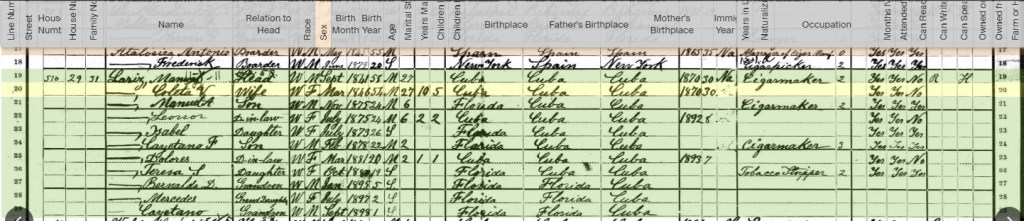 Line Number Street House Number House N Family No Name Relation to Head Race Sex Birth Month Birth Year Age Marital St Years Ma Children Children Birthplace Father's Birthplace Mother's Birthplace Immig Years in U Naturalize Occupation Months N Attended Can Read Can Write Can Spea Owned o Owned fr Farm or H
17 Antonio Boarder W M May 55 M Spain Spain Spain 1865 35 Na 0 Yes Yes Yes
18 Frederick Boarder W M June 1879 20 S New York Spain New York Cigarpicker 2 Yes Yes Yes
19 510 29 31 Manuel Head W M Sept 1841 58 M 27 Cuba Cuba Cuba 1870 30 Na Cigarmaker 2 Yes Yes No R H
20 V Wife W F Mar 1846 54 M 27 10 5 Cuba Cuba Cuba 1870 30 Yes Yes No
21 Manuel A Son W M Nov 1875 24 M 6 Florida Cuba Cuba Cigarmaker 2 Yes Yes Yes
22 Leonor D-in-law W F July 1875 24 M 6 2 2 Cuba Cuba Cuba 1892 8 Yes Yes No
23 Isabel Daughter W F July 1873 26 S Florida Cuba Cuba Yes Yes Yes
24 Cayetano F Son W M Feb 1878 22 M 2 Florida Cuba Cuba Cigarmaker 3 Yes Yes Yes
25 Dolores D-in-law W F Mar 1881 20 M 2 1 1 Cuba Cuba Cuba 1893 7 Yes Yes No
26 Teresa Daughter W F Oct 1880 19 S Florida Cuba Cuba Tobacco Stripper 2 Yes Yes Yes
27 Bernaldo D. Grandson W M Jan 1895 5 S Florida Florida Cuba
28 Mercedes Grand Daughter W F July 1897 2 S Florida Florida Cuba
Cayetano Grandson W M Sept 1898 1 S Florida Florida Cuba